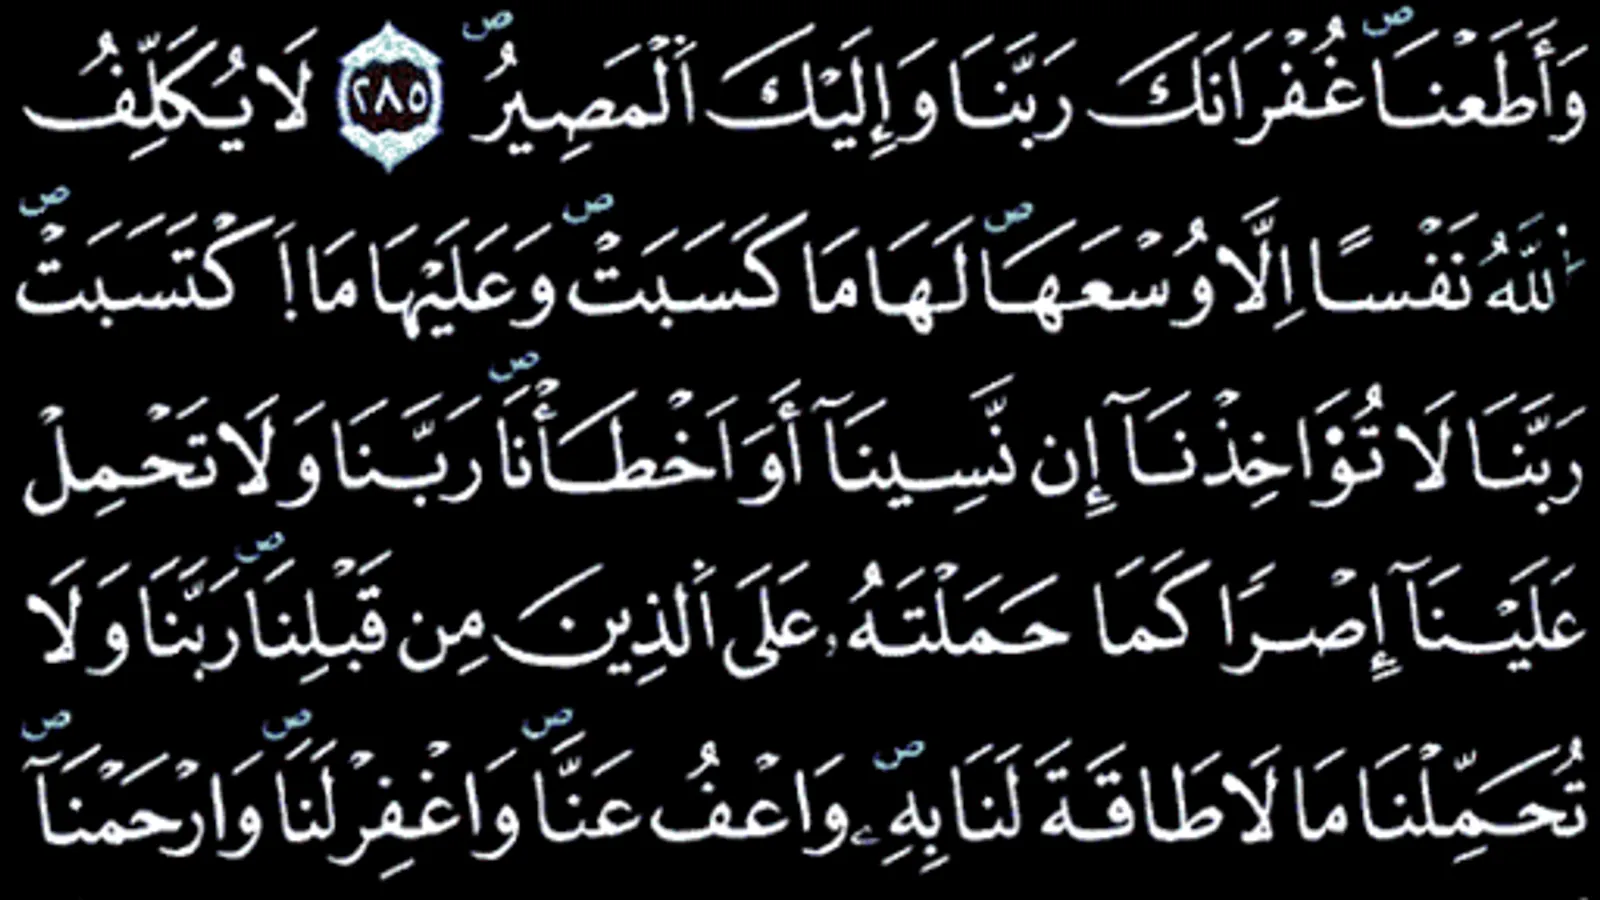 وَأَطَعْنَاۖ غُفْرَانَكَ رَبَّنَا وَإِلَيْكَ اَ۬لْمَصِيرُۖ ۝٢٨٥ لَا يُكَلِّفُ
اُ۬للَّهُ نَفْساً اِلَّا وُسْعَهَاۖ لَهَا مَا كَسَبَتْۖ وَعَلَيْهَا مَا اَ۪كْتَسَبَتْۖ
رَبَّنَا لَا تُؤَاخِذْنَآ إِن نَّسِينَآ أَوَ اَخْطَأْنَاۖ رَبَّنَا وَلَا تَحْمِلْ
عَلَيْنَآ إِصْراً كَمَا حَمَلْتَهُۥ عَلَى اَ۬لذِينَ مِن قَبْلِنَاۖ رَبَّنَا وَلَا
تُحَمِّلْنَا مَا لَا طَاقَةَ لَنَا بِهِۦۖ وَاعْفُ عَنَّاۖ وَاغْفِرْ لَنَاۖ وَارْحَمْنَآۖ